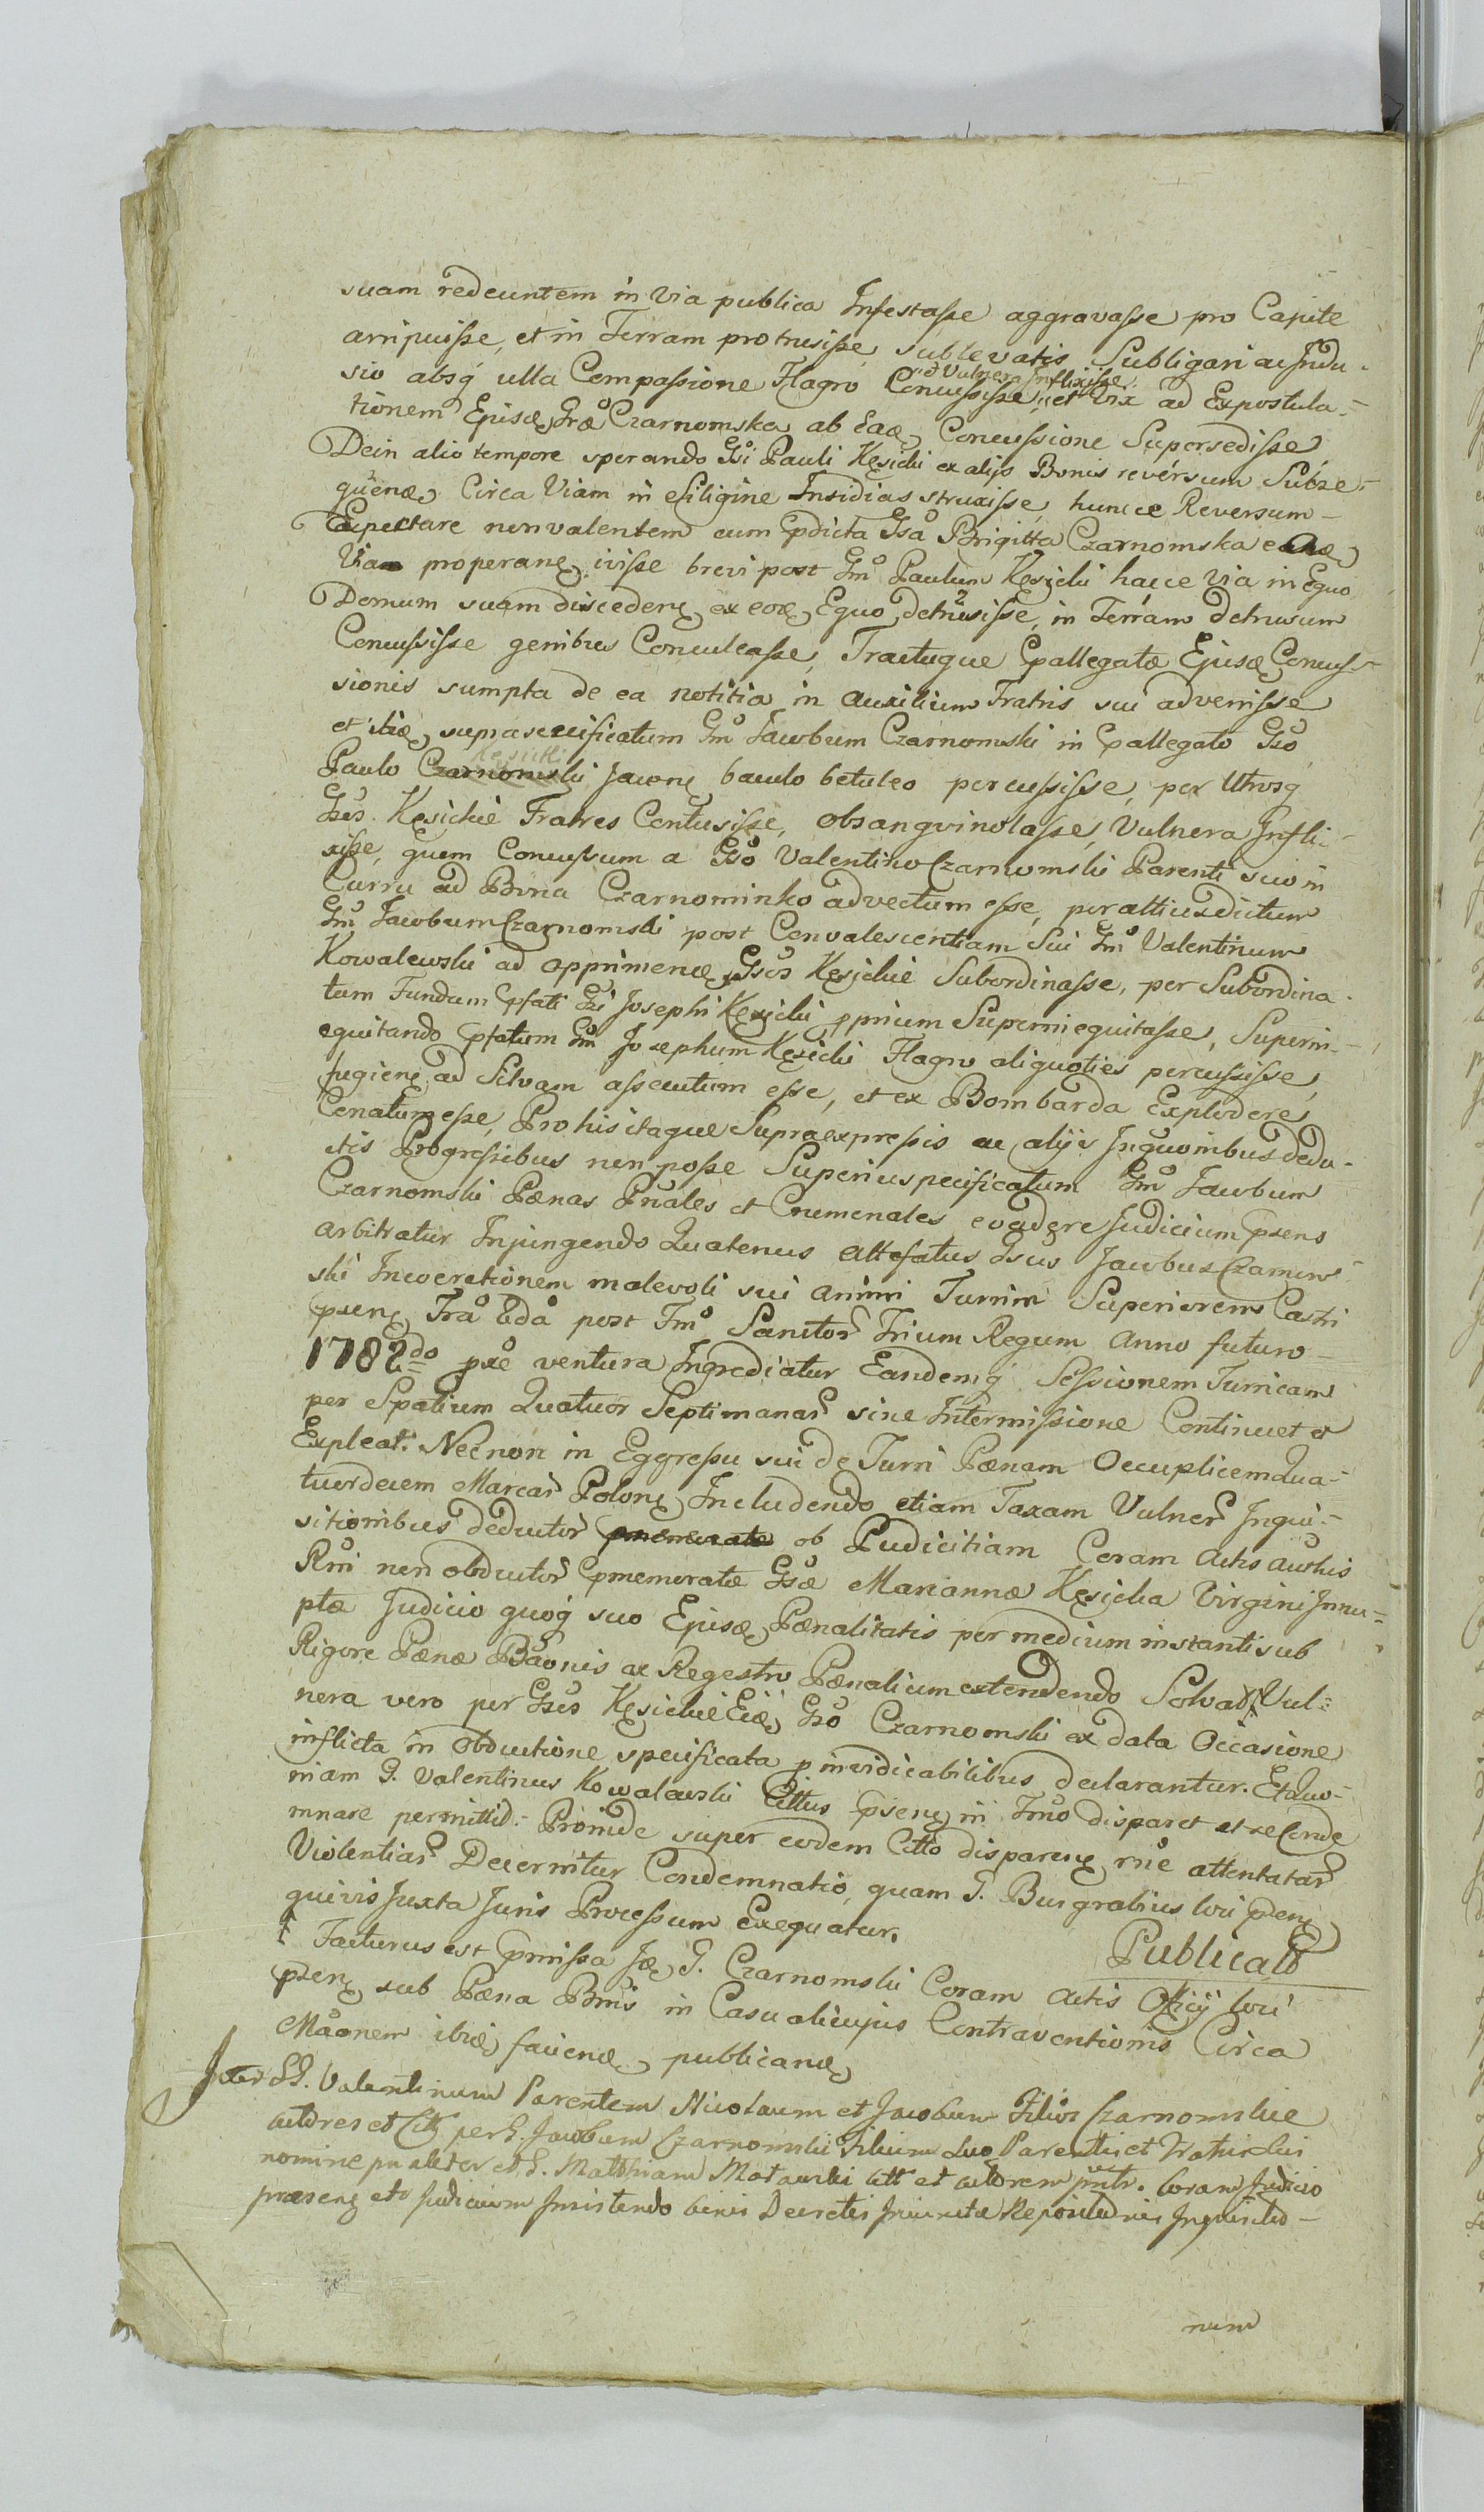 suam redeuntem in via publica Infestasse aggravasse pro Capite
arripuisse, et in Terram protrusisse, sublevatis Subligari ac Indu-
sio absq ulla Compassione Flagro Concussisse, et Vix ad Expostula-
ac Vulnera Inflixisse
tionem Ejusd Gsae Czarnomska ab Ead Concussione Supersedisse,
Dein alio tempore sperando Gsi Pauli Kęsicki ex alijs Bonis reversum Subse-
quend Circa Viam in Siligine Insidias struxisse, huncce Reversum
Expectare non valentem cum pdicta Gsa Brigitta Czarnomska ead
Via properand ivisse brevi post Gm Paulum Kęsicki hacce Via in Equo
Domum suam discedend ex eod Equo detrusisse, in Terram detrusum
Concussisse genibus Conculcasse, Tractuque pallegatae Ejusd Concus-
sionis sumpta de ea notitia in auxilium Fratris sui advenisse
et ibid supraspecificatum Gm Jacobum Czarnomski in pallegato Gso
Kęsicki
Paulo Czarnomski jacen baculo betuleo percussisse, per Utrosq
Gsos Kęsickie Fratres Contusisse, obsangvinolasse, Vulnera Infli-
xisse, quem Concussum a Gso Valentino Czarnomski Parenti suo in
Curru ad Bona Czarnominko advectum esse, per attiusdictum
Gm Jacobum Czarnomski post Convalescentiam Sui Gm Valentinum
Kowalewski ad opprimend Gsos Kęsickie Subordinasse, per Subordina-
tum Fundum pfati Gsi Josephi Kęsicki pprium Superniequitasse, Superni-
equitando pfatum Gm Josephum Kęsicki Flagro aliquoties percussisse,
fugien ad Silvam assecutum esse, et ex Bombarda Explodere
Conatum esse, Pro his itaque Supraexpressis ac alijs Inquonibus dedu-
ctis Progressibus non posse Superiuspecificatum Gm Jacobum
Czarnomski Paenas Pnales et Crumenales evadere Judicium psens
arbitratur Injungendo Quatenus attefatus Gsus Jacobus Czarnom-
ski Incoerctionem malevoli sui animi Turrim Superiorem Castri
psen Fra 6da post Fm Sanctor Trium Regum Anno futuro
1782do pxe ventura Ingrediatur Eandemq Sessionem Turricam
per Spatium Quatuor Septimanar sine Intermissione Continuet et
Expleat. Necnon in Eggressu sui de Turri Paenam Occuplicem Qua-
tuordecem Marcar Polon Includendo etiam Taxam Vulner Inqui-
sitionibus deductor pmemoratae ob Pudicitiam Coram Actis authis
Rni non obductor pmemoratae Gsae Mariannae Kęsicka Virgini Innu-
ptae Judicio quoq suo Ejusd Paenalitatis per medium instanti sub
Rigore Paenae Baonis ac Regestro Paenalium extendendo Solvat, Vul-
nera vero per Gsos Kęsickie Eid Gso Czarnomski ex data Occasione
inflicta in Obductione specificata p invidicabilibus declarantur. Et Quo-
niam G. Valentinus Kowalewski Cittus psen in Tmo disparet et se Conde-
mnare permittit. Proinde super eodem Citto disparen rne attentatar
Violentiar Decernitur Condemnatio, quam G. Burgrabius loci psen
quivis Juxta Juris Processum Exequatur.
Publicat
Facturus est pmissa Id G. Czarnomski Coram Actis Officij loci
psen sub Paena Bnis in Casu alicujus Contraventionis Circa
Maonem ibid faciend publicand
Inter GG. Valentinum Parentem Nicolaum et Jacobum Filios Czarnomskie
actores et Citt per G. Jacobum Czarnomski Filium suo Parentis et Fratris sui
nomine pnaliter et G. Matthiam Matański Citt et actorem pntr. Coram Judicio
praesen etc Judicium Insistendo binis Decretis Juncta Repositionis Inquisitio-
num